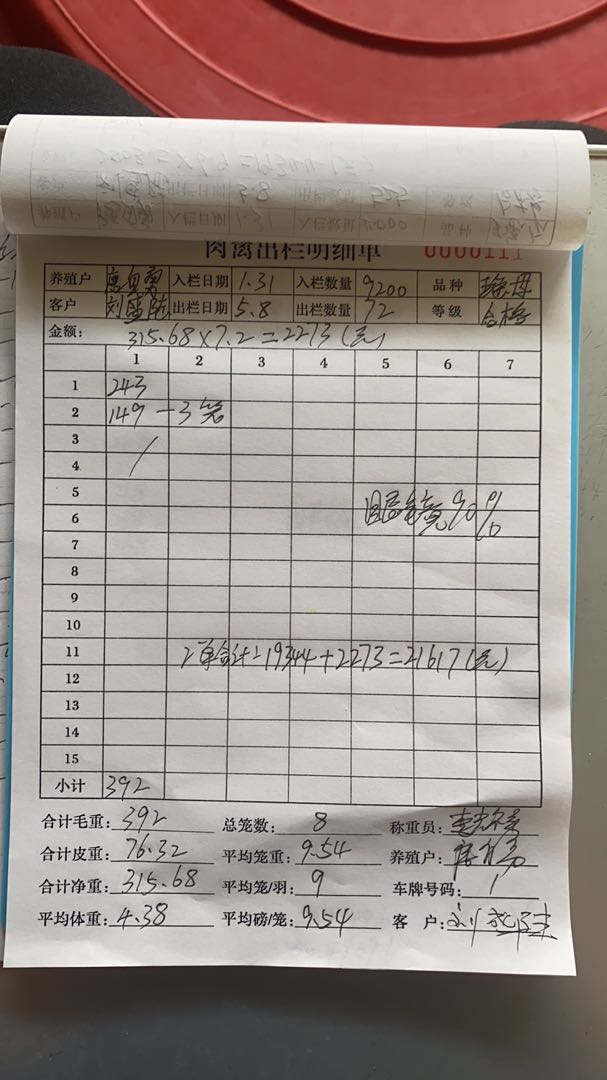 肉禽出栏明细单 0000111
养殖户 入栏日期 1.31 入栏数量 9200 品种
客户 出栏日期 5.8 出栏数量 72 等级 合格
金额: 315.68×7.2=2273(元)
1 2 3 4 5 6 7
1 243
2 149-3笼
3
4 /
5
6 90%
7
8
9
10
11 2单合计=19344+2273=21617(元)
12
13
14
15
小计 392
合计毛重: 392 总笼数: 8 称重员:
合计皮重: 76.32 平均笼重: 9.54 养殖户:
合计净重: 315.68 平均笼/羽: 9 车牌号码: 1
平均体重: 4.38 平均磅/笼: 9.54 客 户: